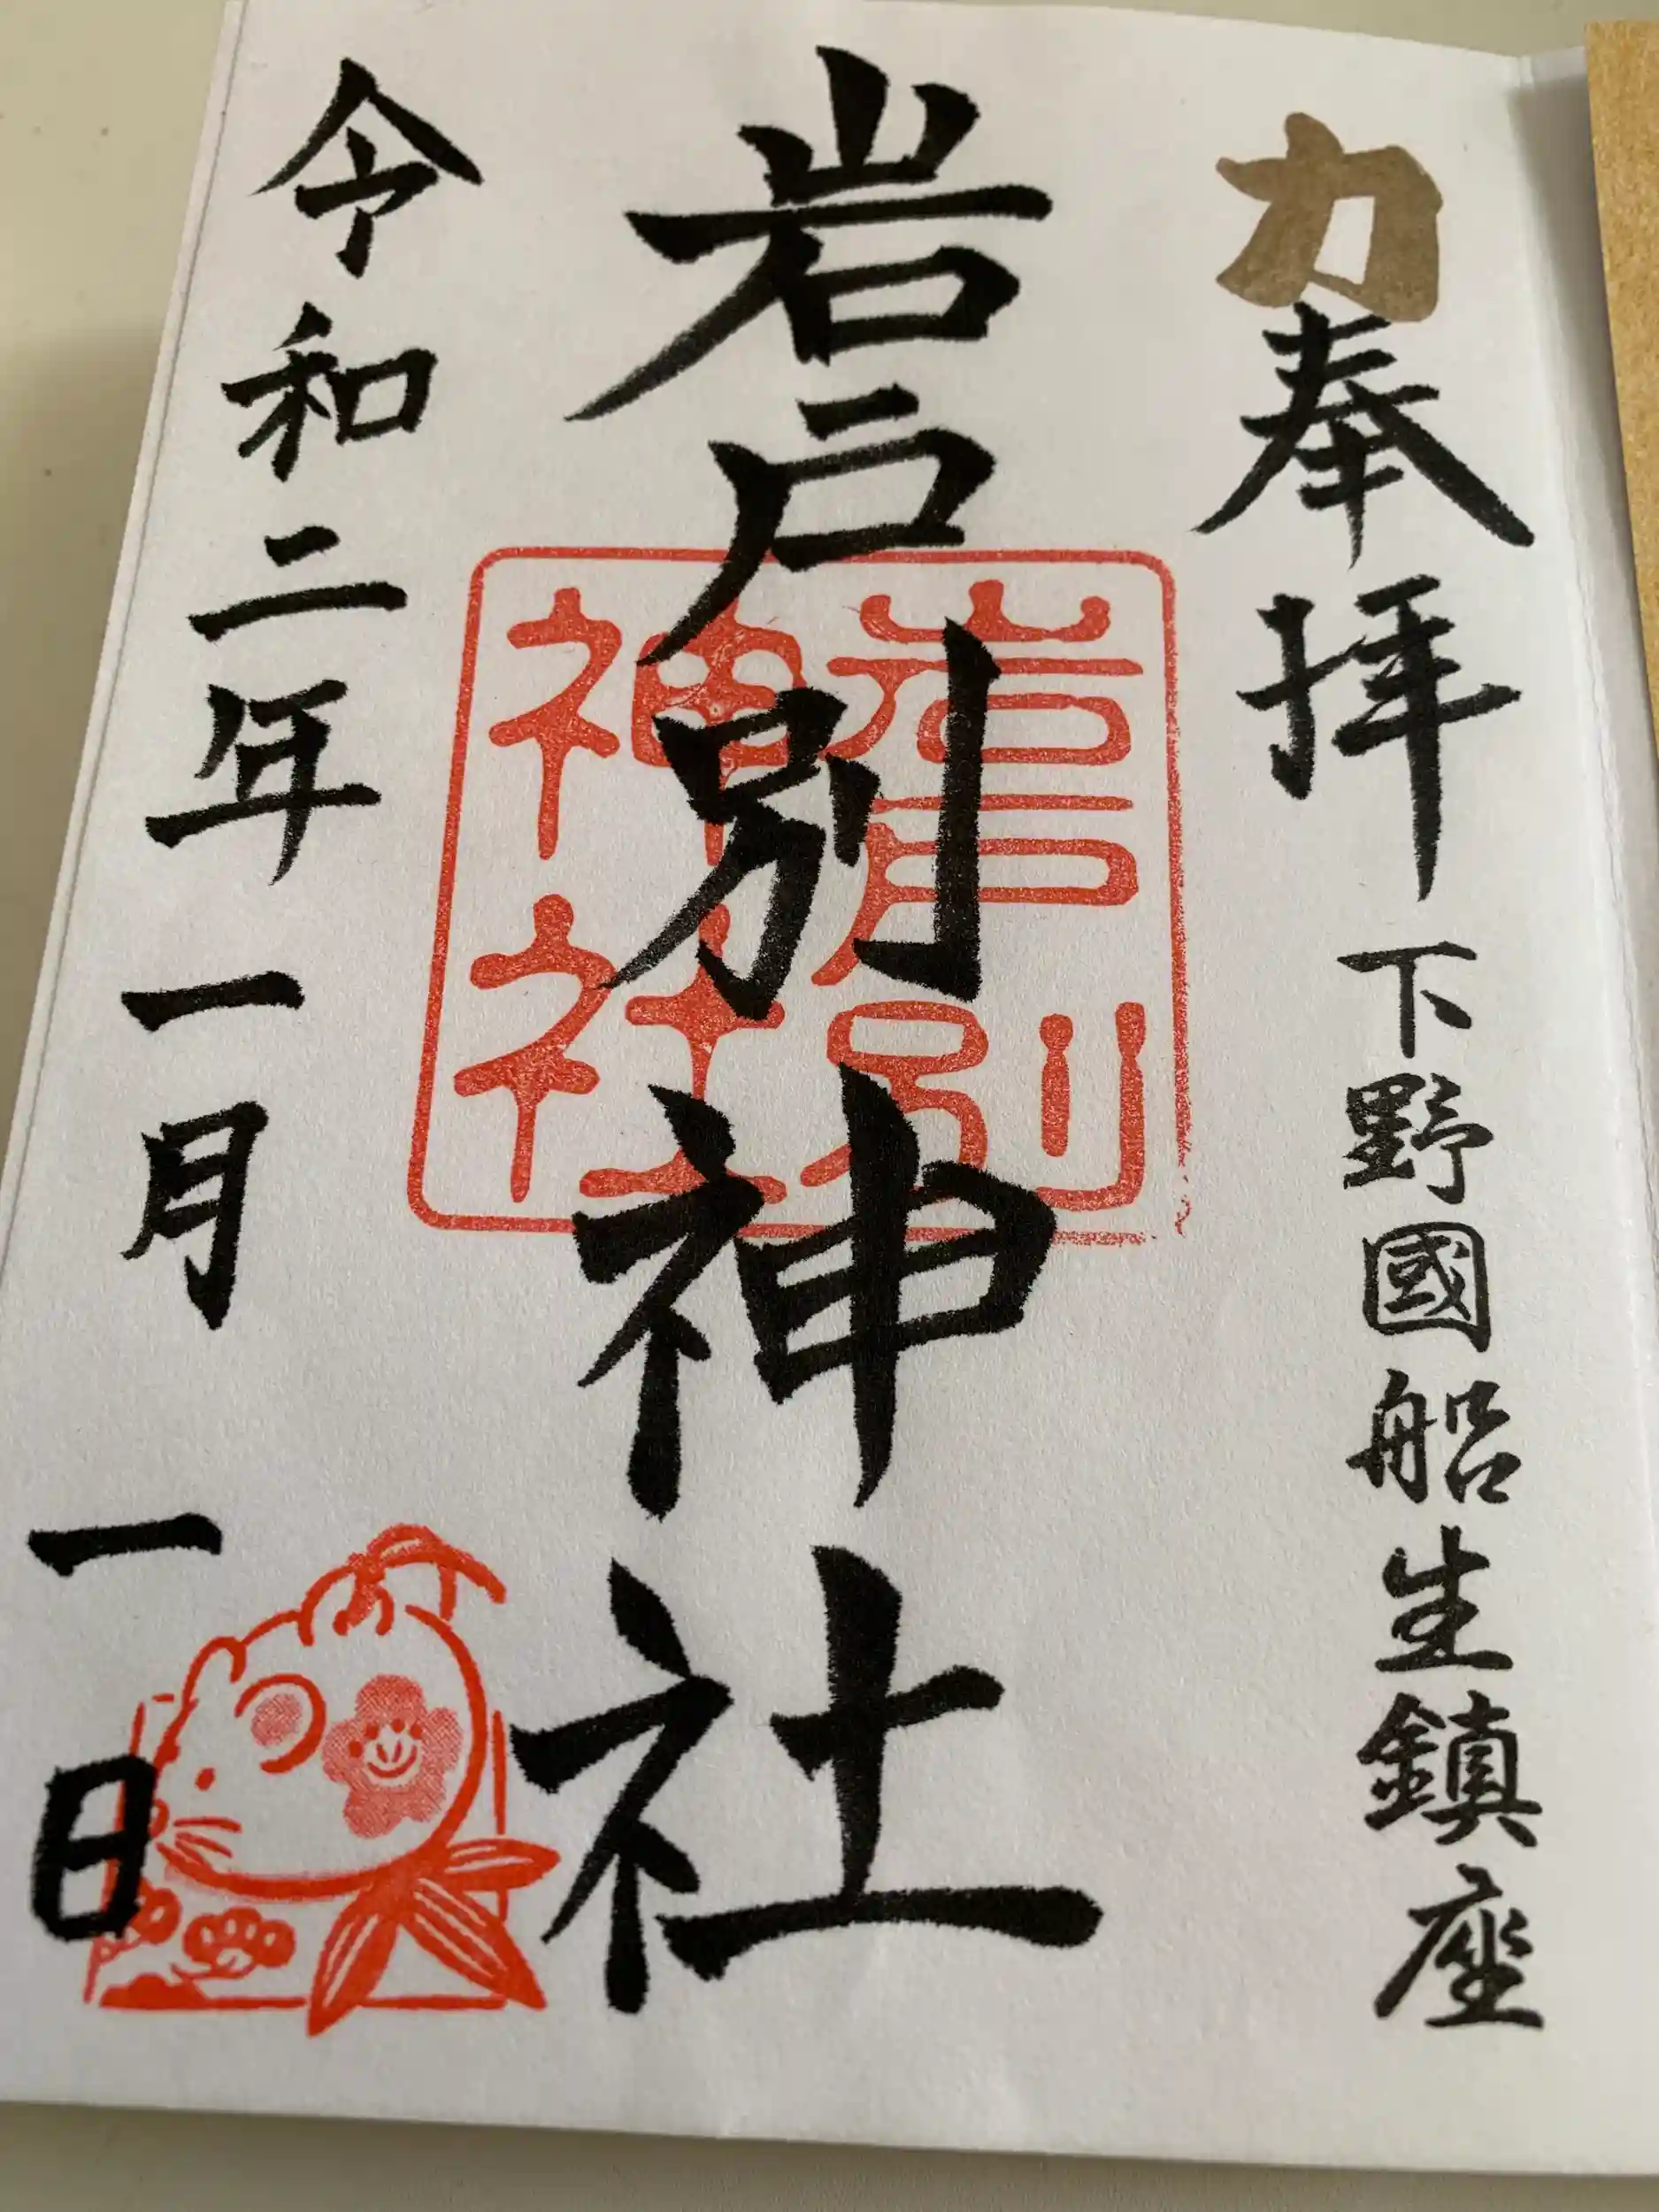 力
奉拝
下野國船生鎮座
岩戸別神社
岩戸別
神社
令和二年一月一日